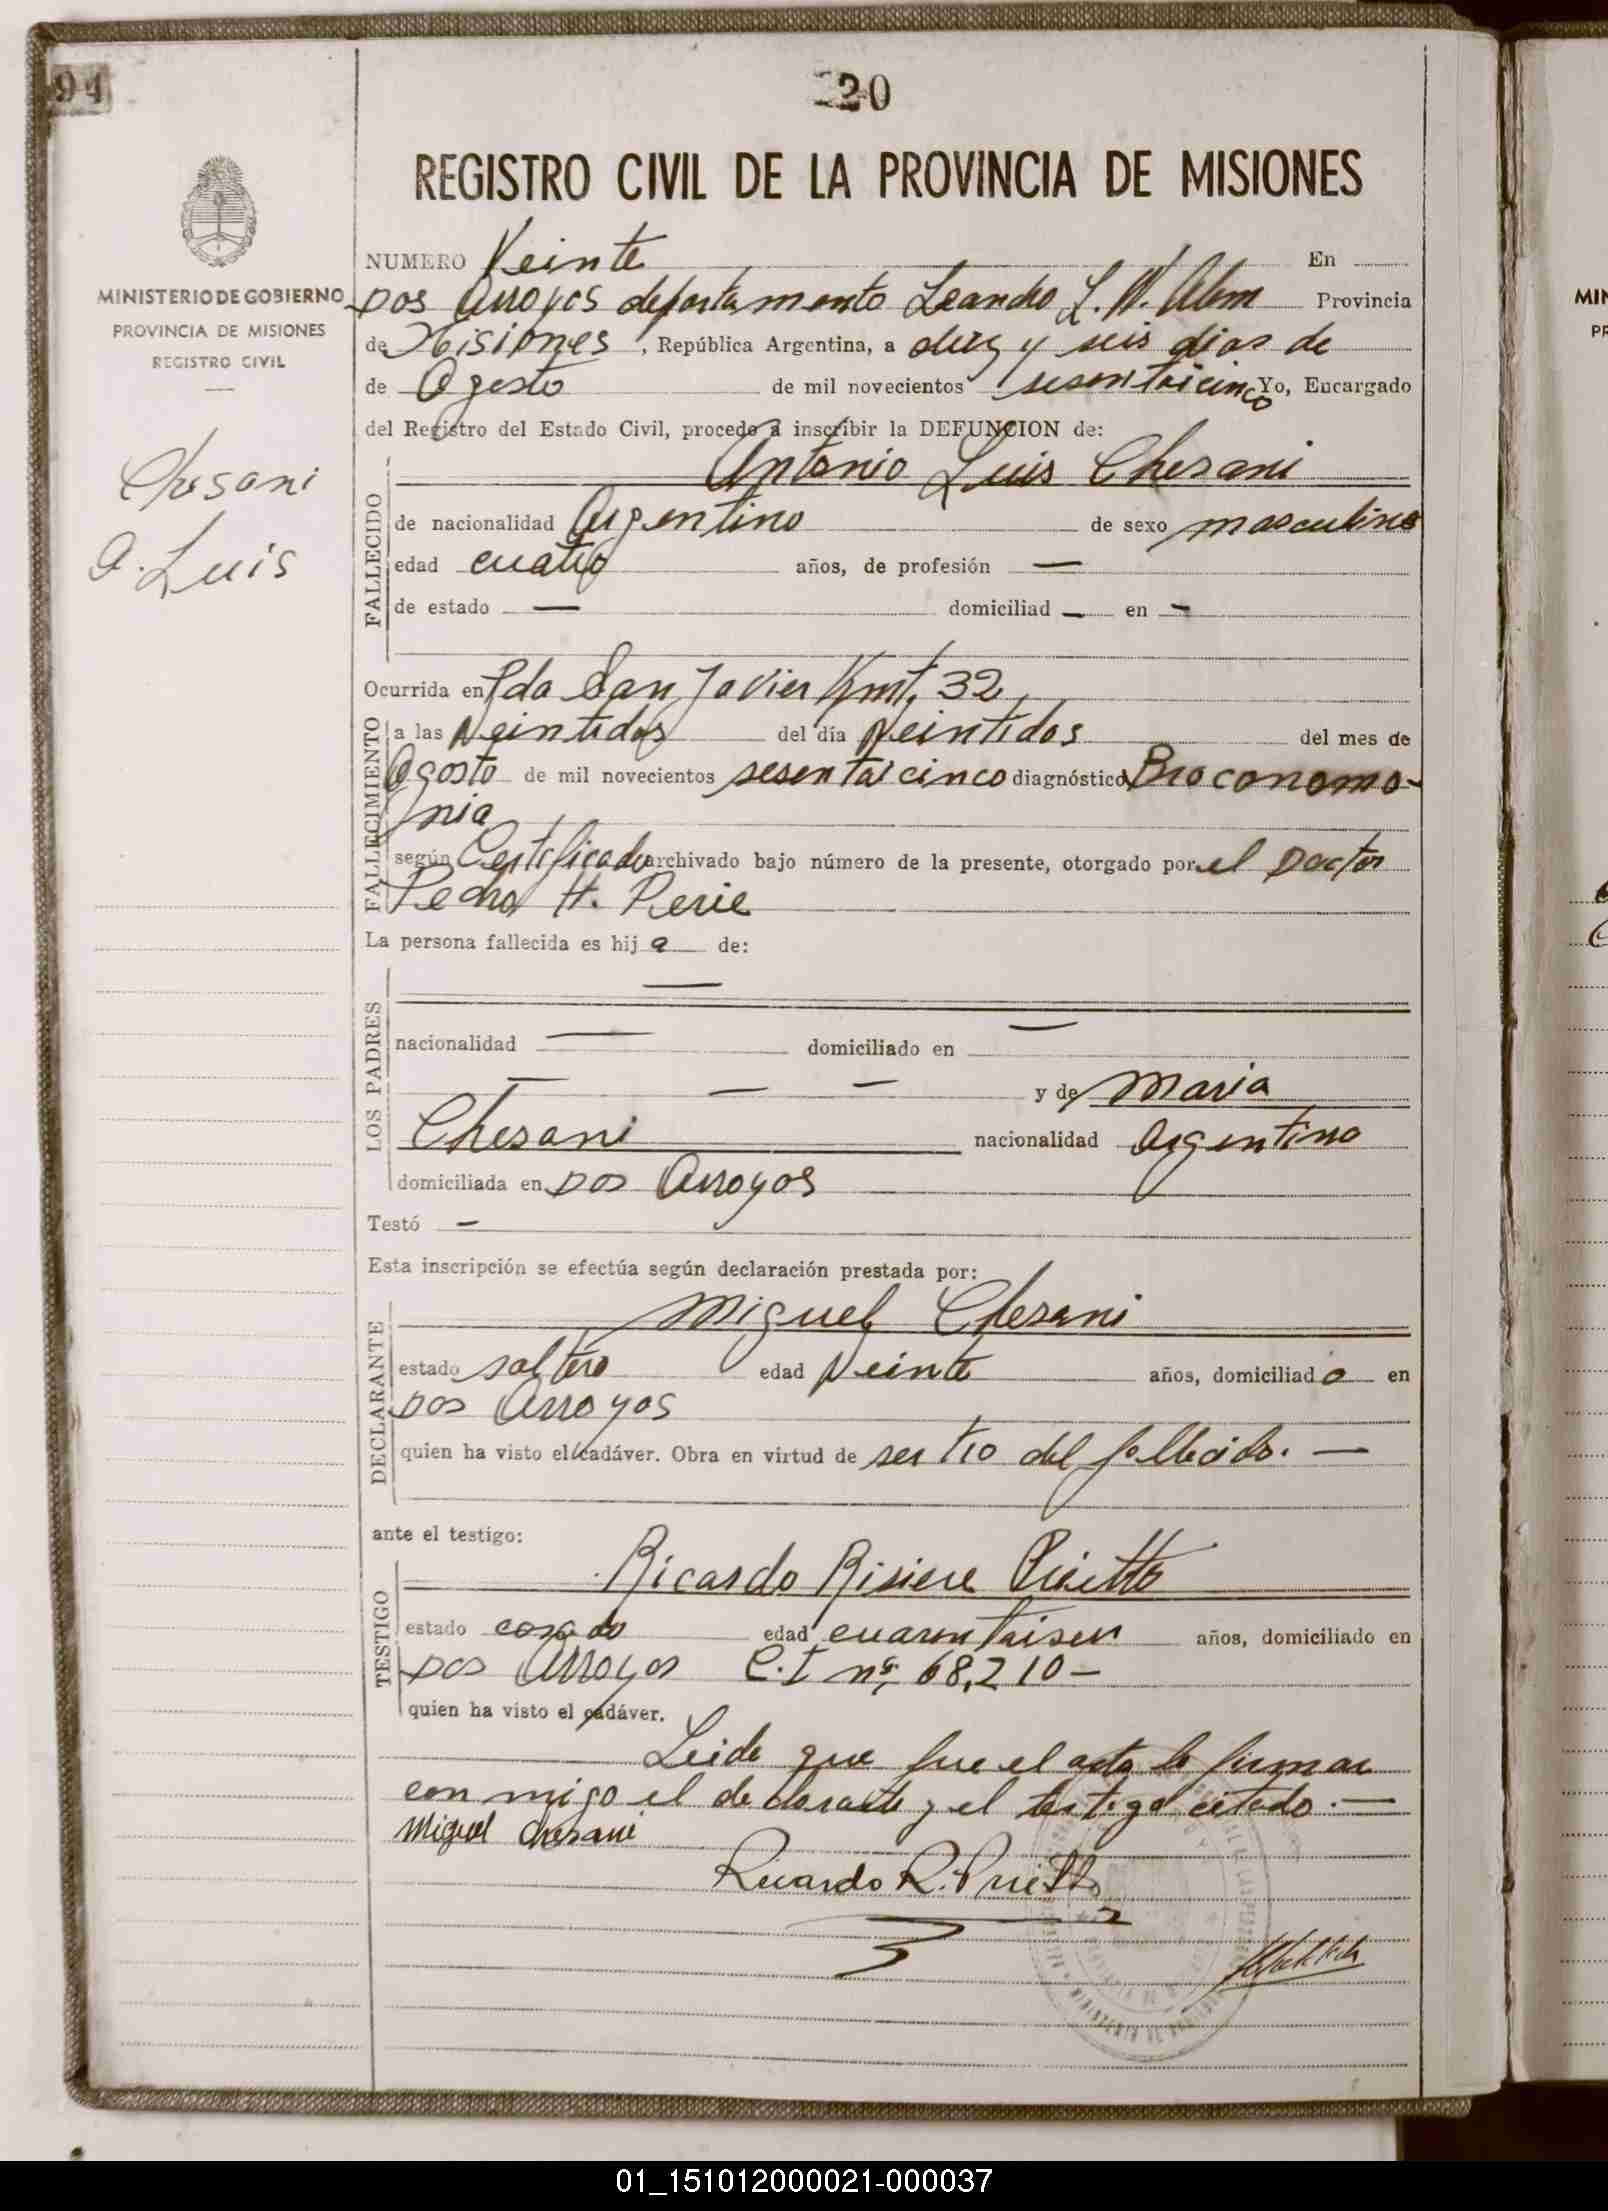 94
20
REGISTRO CIVIL DE LA PROVINCIA DE MISIONES
MINISTERIO DE GOBIERNO
PROVINCIA DE MISIONES
REGISTRO CIVIL
Chesani
A. Luis
NUMERO Veinte En
Dos Arroyos departamento Leandro L. N. Alem Provincia
de Misiones, República Argentina, a diez y seis dias de
de Agosto de mil novecientos sesentaicinco Yo, Encargado
del Registro del Estado Civil, procedo a inscribir la DEFUNCION de:
Antonio Luis Chesani
FALLECIDO
de nacionalidad Argentino de sexo masculino
edad cuatro años, de profesión —
de estado — domiciliad — en -
Ocurrida en Pda San Javier Kmt, 32
FALLECIMIENTO
a las veintidos del día veintidos del mes de
Agosto de mil novecientos sesentaicinco diagnóstico Broconomo-
nia
según Certificado archivado bajo número de la presente, otorgado por el Doctor
Pedro H. Perie
La persona fallecida es hij a de:
—
LOS PADRES
nacionalidad — domiciliado en —
— — — y de Maria
Chesani nacionalidad Argentina
domiciliada en Dos Arroyos
Testó -
Esta inscripción se efectúa según declaración prestada por:
Miguel Chesani
DECLARANTE
estado soltero edad veinte años, domiciliad o en
Dos Arroyos
quien ha visto el cadáver. Obra en virtud de ser tio del fallecido. —
ante el testigo:
Ricardo Risiere Privitto
TESTIGO
estado casado edad cuarentaiseis años, domiciliado en
Dos Arroyos C. I nº, 68,210-
quien ha visto el cadáver.
Leida que fue el acta la firman
con migo el declarante y el testigo citado. —
Miguel Chesani
Ricardo R.
01_151012000021-000037